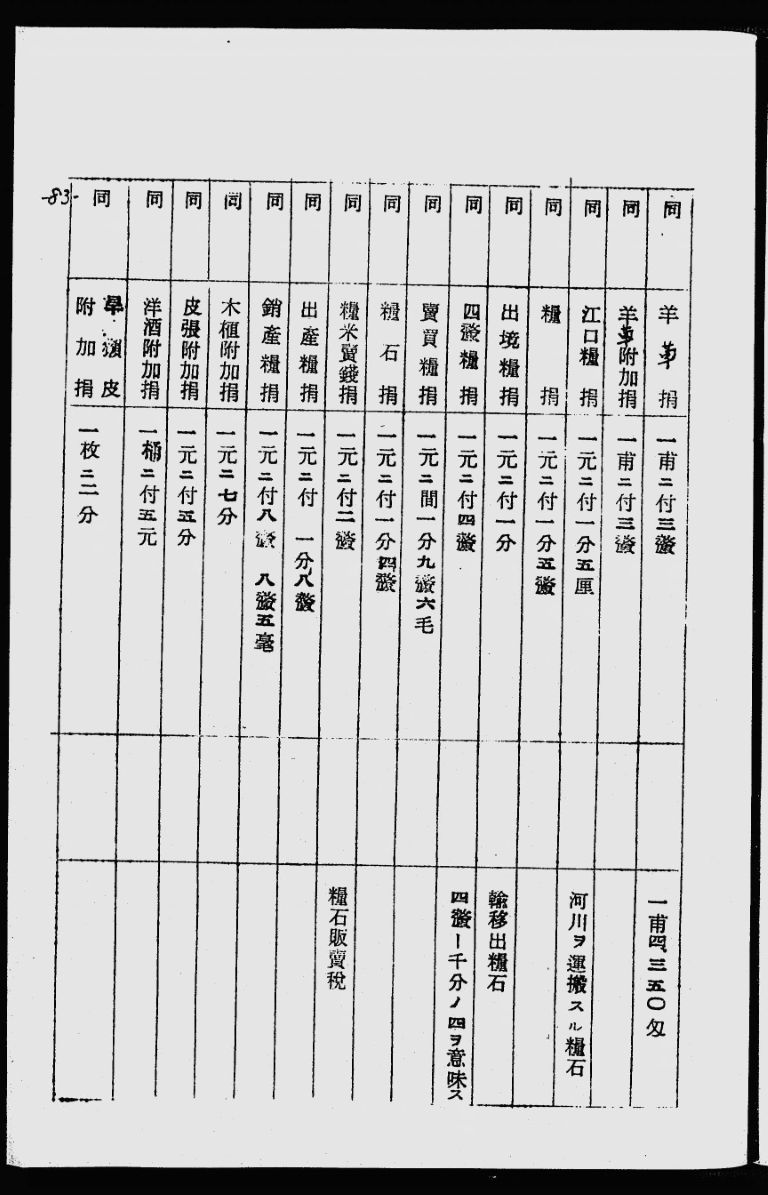 同 羊草捐 一甫ニ付三釐 一甫四、三五〇匁
同 羊草附加捐 一甫ニ付三釐
同 江口糧捐 一元ニ付一分五厘 河川ヲ運搬スル糧石
同 糧捐 一元ニ付一分五釐
同 出境糧捐 一元ニ付一分 輸移出糧石
同 四釐糧捐 一元ニ付四釐 四釐ー千分ノ四ヲ意味ス
同 賣買糧捐 一元ニ間一分九釐六毛
同 糧石捐 一元ニ付一分四釐
同 糧米賣錢捐 一元ニ付二釐 糧石販賣稅
同 出產糧捐 一元ニ付 一分八釐
同 銷產糧捐 一元ニ付八釐 八釐五毫
同 木植附加捐 一元ニ七分
同 皮張附加捐 一元ニ付五分
同 洋酒附加捐 一桶ニ付五元
同 皮附加捐 一枚ニ二分
-83-